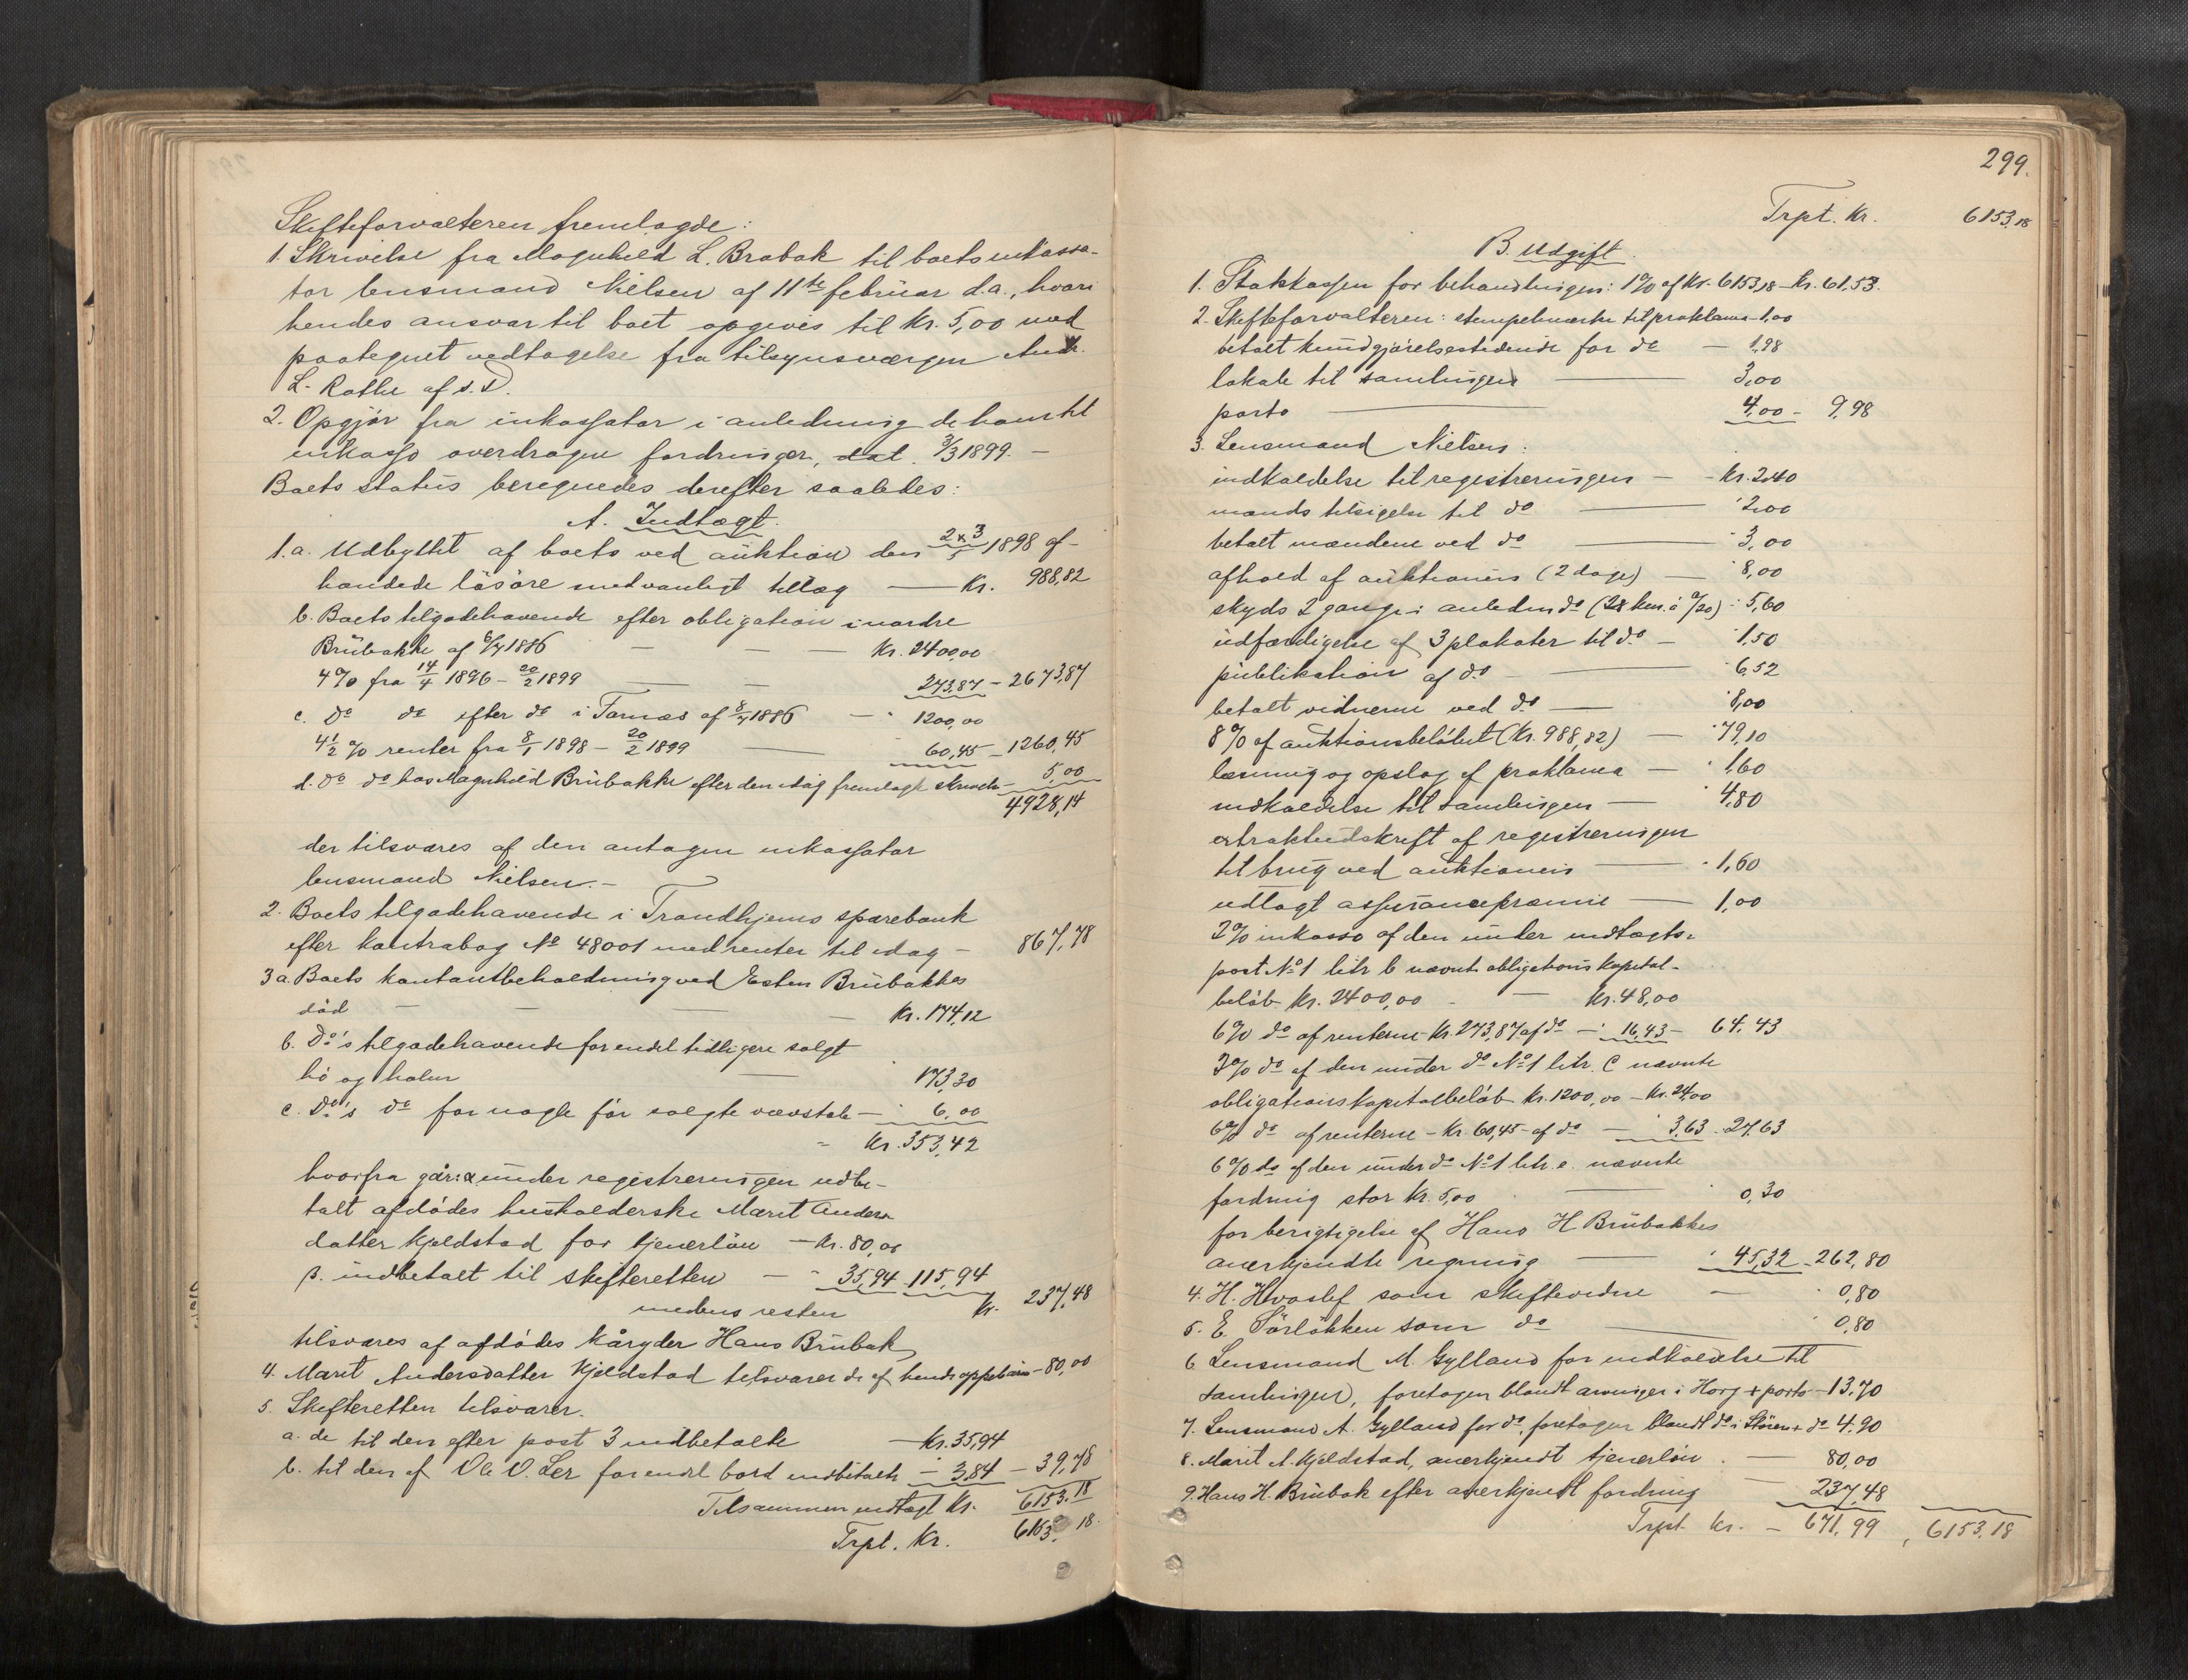 Skifteforvalteren fremlagde:
1. Skrivelse fra Magnhild L. Brobak til boets inkassa-
tor lensmand Nielsen af 11te februar d.a., hvori
hendes ansvar til boet opgives til Kr. 5,00 med
paategnet vedtagelse fra tilsynsværgen Andr.
L. Rathe af s. D.
2. Opgjør fra inkassator i anledning de ham til
inkasso overdragne fordringer, dat. 3/3 1899. —
Boets status beregnedes derefter saaledes:
A. Indtægt.
1.a. Udbyttet af boets ved auktion den 2 & 3/5 1898 af-
hændede løsøre med vanligt tillæg — Kr. 988,82
b. Boets tilgodehavende efter obligation i nordre
Brubakke af 8/7 1886 — — — Kr. 2400,00
4% fra 14/4 1896 - 20/2 1899 — — 273,87 - 2673,87
c. do do efter do i Tamæs af 8/7 1886 — " 1200,00
4 1/2 % renter fra 8/1 1898 - 20/2 1899 — 60,45 - 1260,45
d. do do hos Magnhild Brubakke efter den idag fremlagte skrivelse - 5,00
4928,14
der tilsvares af den antagne inkassator
lensmand Nielsen. -
2. Boets tilgodehavende i Trondhjems sparebank
efter kontrabog No 48001 med renter til idag - 867,78
3 a. Boets kontantbeholdning ved Esten Brubakkes
død — — — — Kr. 174,12
b. Do's tilgodehavende for endel tidligere solgt
hø og halm — 173,30
c. Do's do for nogle før solgte vævstole — " 6,00
" Kr. 353,42
hvorfra går: α. under registreringen udbe-
talt afdødes husholderske Marit Anders-
datter Kjeldstad for tjenerløn — Kr. 80,00
β. indbetalt til skifteretten — " 35,94 115,94
medens resten Kr. 237,48
tilsvares af afdødes kåryder Hans Brubak
4. Marit Andersdatter Kjeldstad tilsvarer de af hende oppebårne - 80,00
5. Skifteretten tilsvarer.
a. de til den efter post 3 indbetalte — Kr. 35,94
b. til den af Ole O. Ler for endel bord indbetalte - 3,84 - 39,78
Tilsammen indtægt Kr. 6153,18
Trpt. Kr. 6153,18.
299.
Trpt. Kr. 6153,18
B. Udgift.
1. Statskassen for behandlingen: 1% af Kr. 6153,18 - Kr. 61,53.
2. Skifteforvalteren: stempelmærke til proklama - 1,00
betalt kundgjørelsestidende for do — 1,98
lokale til samlingen — 3,00
porto — 4,00 - 9,98
3. Lensmand Nielsen:
indkaldelse til registreringen — - Kr. 2,40
mænds tilsigelse til do — " 2,00
betalt mændene ved do — " 3,00
afhold af auktionen (2 dage) — " 8,00
skyds 2 gange i anledn. do (28 km. à 0/20) " 5,60
udfærdigelse af 3 plakater til do — " 1,50
publikation af do — " 6,52
betalt vidnerne ved do — " 8,00
8% af auktionsbeløbet (Kr. 988,82) — " 79,10
læsning og opslag af proklama — " 1,60
indkaldelse til samlingen — " 4,80
extraktudskrift af registreringen
til brug ved auktionen — " 1,60
udlagt assurancepræmie — 1,00
2% inkasso af den under indtægts-
post No 1 litr. b nævnte obligations kapital-
beløb Kr. 2400,00 — Kr. 48,00
6% do af renterne Kr. 273,87 af do — " 16,43 - 64,43
2% do af den under do No 1 litr. c nævnte
obligationskapitalbeløb Kr. 1200,00 - Kr. 24,00
6% do af renterne - Kr. 60,45 - af do — " 3,63 " 27,63
6% do af den under do No 1 litr. e. nævnte
fordring stor Kr. 5,00 — " 0,30
for berigtigelse af Hans H. Brubakkes
anerkjendte regning — " 45,32 - 262,80
4. H. Hvoslef som skiftevidne — " 0,80
5. E. Sørløkken som do — " 0,80
6. Lensmand M. Gylland for indkaldelse til
samlingen, foretagen blandt arvinger i Horg + porto - 13,70
7. Lensmand A. Gylland for do, foretagen blandt do i Støren + do 4,90
8. Marit A. Kjeldstad, anerkjendt tjenerløn. — 80,00
9. Hans H. Brubak efter anerkjendt fordring 237,48
Trpt. Kr. - 671,99 , 6153,18